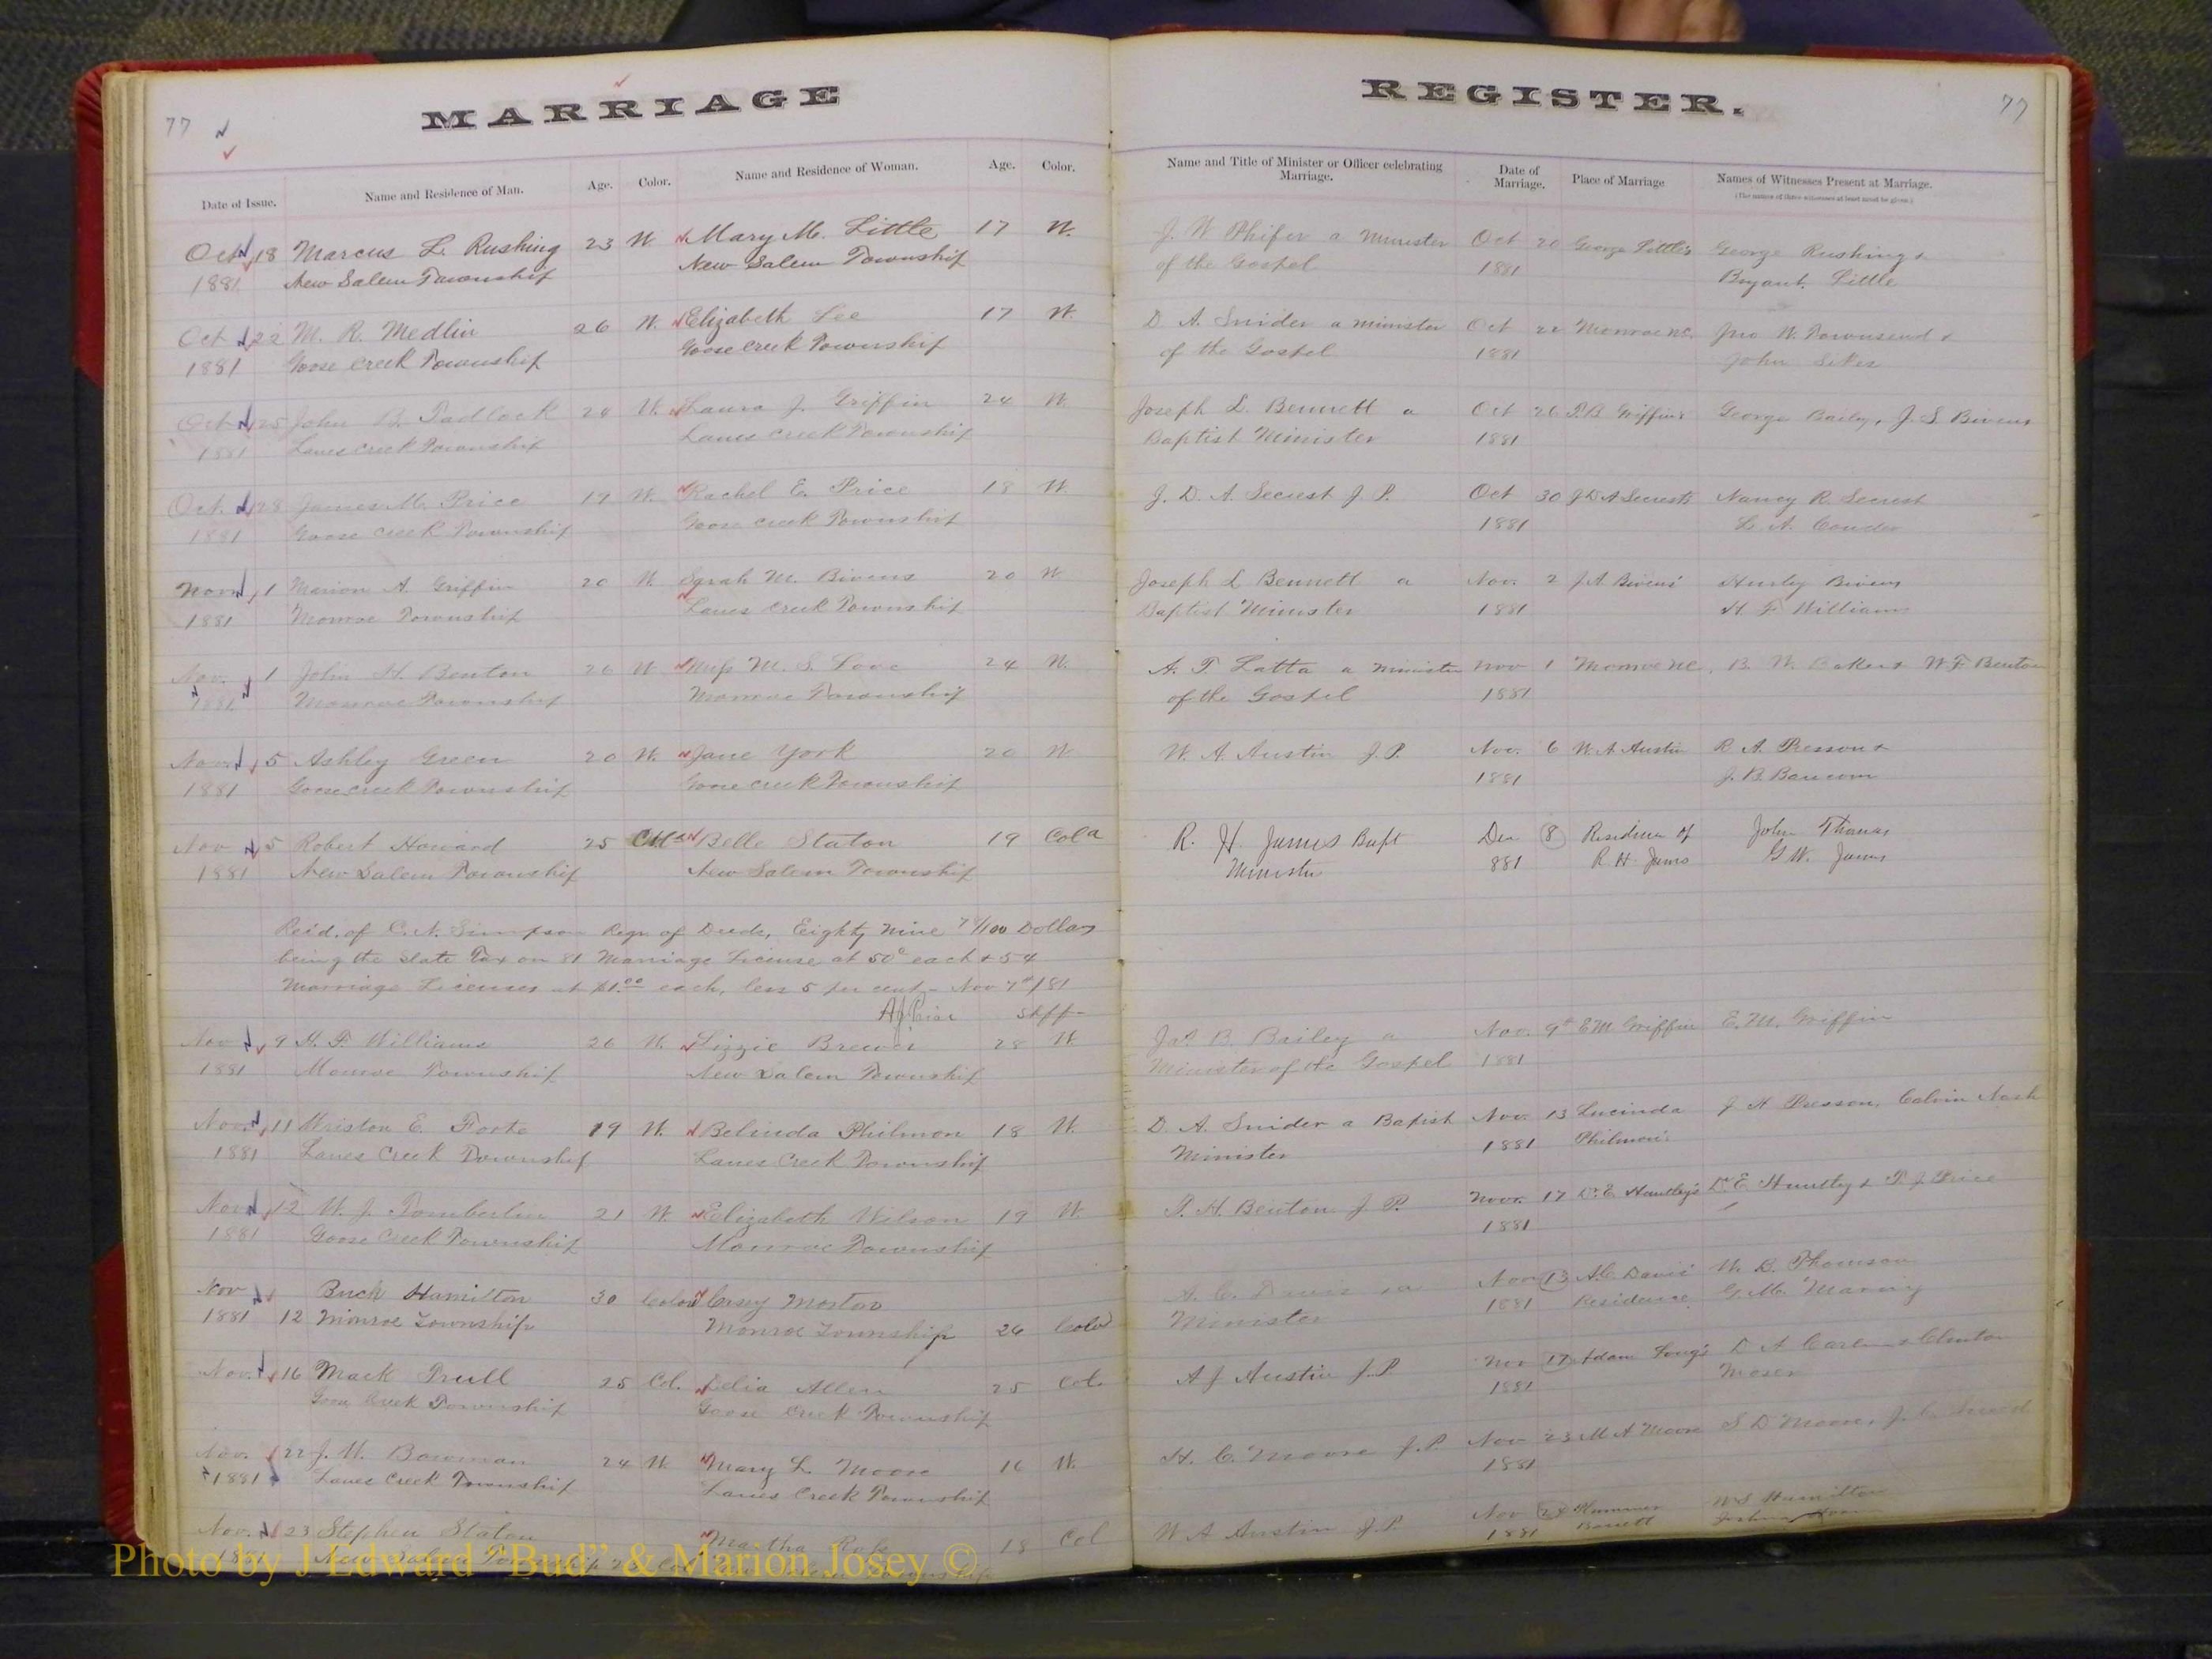 77
MARRIAGE
REGISTER.
77
Date of Issue. Name and Residence of Man. Age. Color. Name and Residence of Woman. Age. Color. Name and Title of Minister or Officer celebrating Marriage. Date of Marriage. Place of Marriage Names of Witnesses Present at Marriage.
(The names of three witnesses at least must be given.)
Oct 18 Marcus L. Rushing 23 W Mary M. Little 17 W. J. W Phifer a Minister Oct 20 George Little's George Rushing &
1881 New Salem Township New Salem Township of the Gospel 1881 Bryant Little
Oct 22 M. R. Medlin 26 W. Elizabeth Lee 17 W. D. A. Snider a minister Oct 22 Monroe NC. Jno W. Townsend &
1881 Goose Creek Township Goose Creek Township of the Gospel 1881 John Sikes
Oct 25 John B. Tadlock 24 W. Laura J. Griffin 24 W. Joseph L. Bennett a Oct 26 Griffin's George Baily, J. S. Bivens
1881 Lanes Creek Township Lanes Creek Township Baptist Minister 1881
Oct. 28 James M. Price 19 W. Rachel E. Price 18 W. J. D. A. Secrest J. P. Oct 30 J D A Secrests Nancy R. Secrest
1881 Goose Creek Township Goose Creek Township 1881 L. A. Conder
Nov 1 Marion A. Griffin 20 W. Sarah M. Bivens 20 W Joseph L Bennett a Nov. 2 J. A. Bivens' Hurley Bivens
1881 Monroe Township Lanes Creek Township Baptist Minister 1881 H. F. Williams
Nov. 1 John H. Benton 26 W Miss M. S. Love 24 W. A. T. Latta a minister Nov 1 Monroe NC. B. W. Baker & W. F. Benton
1881 Monroe Township Monroe Township of the Gospel 1881
Nov 5 Ashley Green 20 W. Jane York 20 W W. A. Austin J. P. Nov. 6 W. A Austin R. A. Presson &
1881 Goose Creek Township Goose Creek Township 1881 J. B. Baucom
Nov 5 Robert Howard 25 Belle Staton 19 Cold R. H. James Bapt Dec 8 Residence of John Thomas
1881 New Salem Township New Salem Township Minister 881 R. H. James G. W. James
Recd. of C. N. Simpson Regr. of Deeds, Eighty Nine /100 Dollars
being the State Tax on 81 Marriage License at 50c each & 54
Marriage Licenses at $1.00 each, less 5 per cent - Nov 7th/81
Shff-
Nov 9 H. F. Williams 26 W. Lizzie Brewer 28 W Jas B. Bailey a Nov. 9th E M Griffin E. M. Griffin
1881 Monroe Township New Salem Township Minister of the Gospel 1881
Nov 11 Wriston E. Forte 19 W. Belinda Philmon 18 W. D. A. Snider a Baptist Nov. 13 Lucinda J H Presson, Calvin Nash
1881 Lanes Creek Township Lanes Creek Township Minister 1881 Philmon's
Nov 12 W. J. Tomberlin 21 W Elizabeth Wilson 19 W. T. H. Benton J P. Nov. 17 Dr. E Huntley's Dr. E Huntley & T. J. Price
1881 Goose Creek Township Monroe Township 1881
Nov Buck Hamilton 30 Color Morton A. C. Davis a Nov 13 A. C. Davis' W. D. Thomson
1881 12 Monroe Township Monroe Township 26 Color Minister 1881 Residence G. M.
Nov. 16 Mack Trull 25 Col. Delia Allen 25 Col. A J Austin J. P. Nov 17 Adam Long's D A
1881 Goose Creek Township Goose Creek Township Moser
Nov. 22 J. W. Bowman 24 W Mary L. Moore 16 W. H. C. Moore J. P Nov 23 M A Moore S D Moore, J. C.
1881 Lanes Creek Township Lanes Creek Township 1881
Nov. 23 Stephen Staton Martha 18 Col W A Austin J. P. Nov 24 W S Hamilton
1881 New Salem Township 1881
Photo by J Edward "Bud" & Marion Josey ©